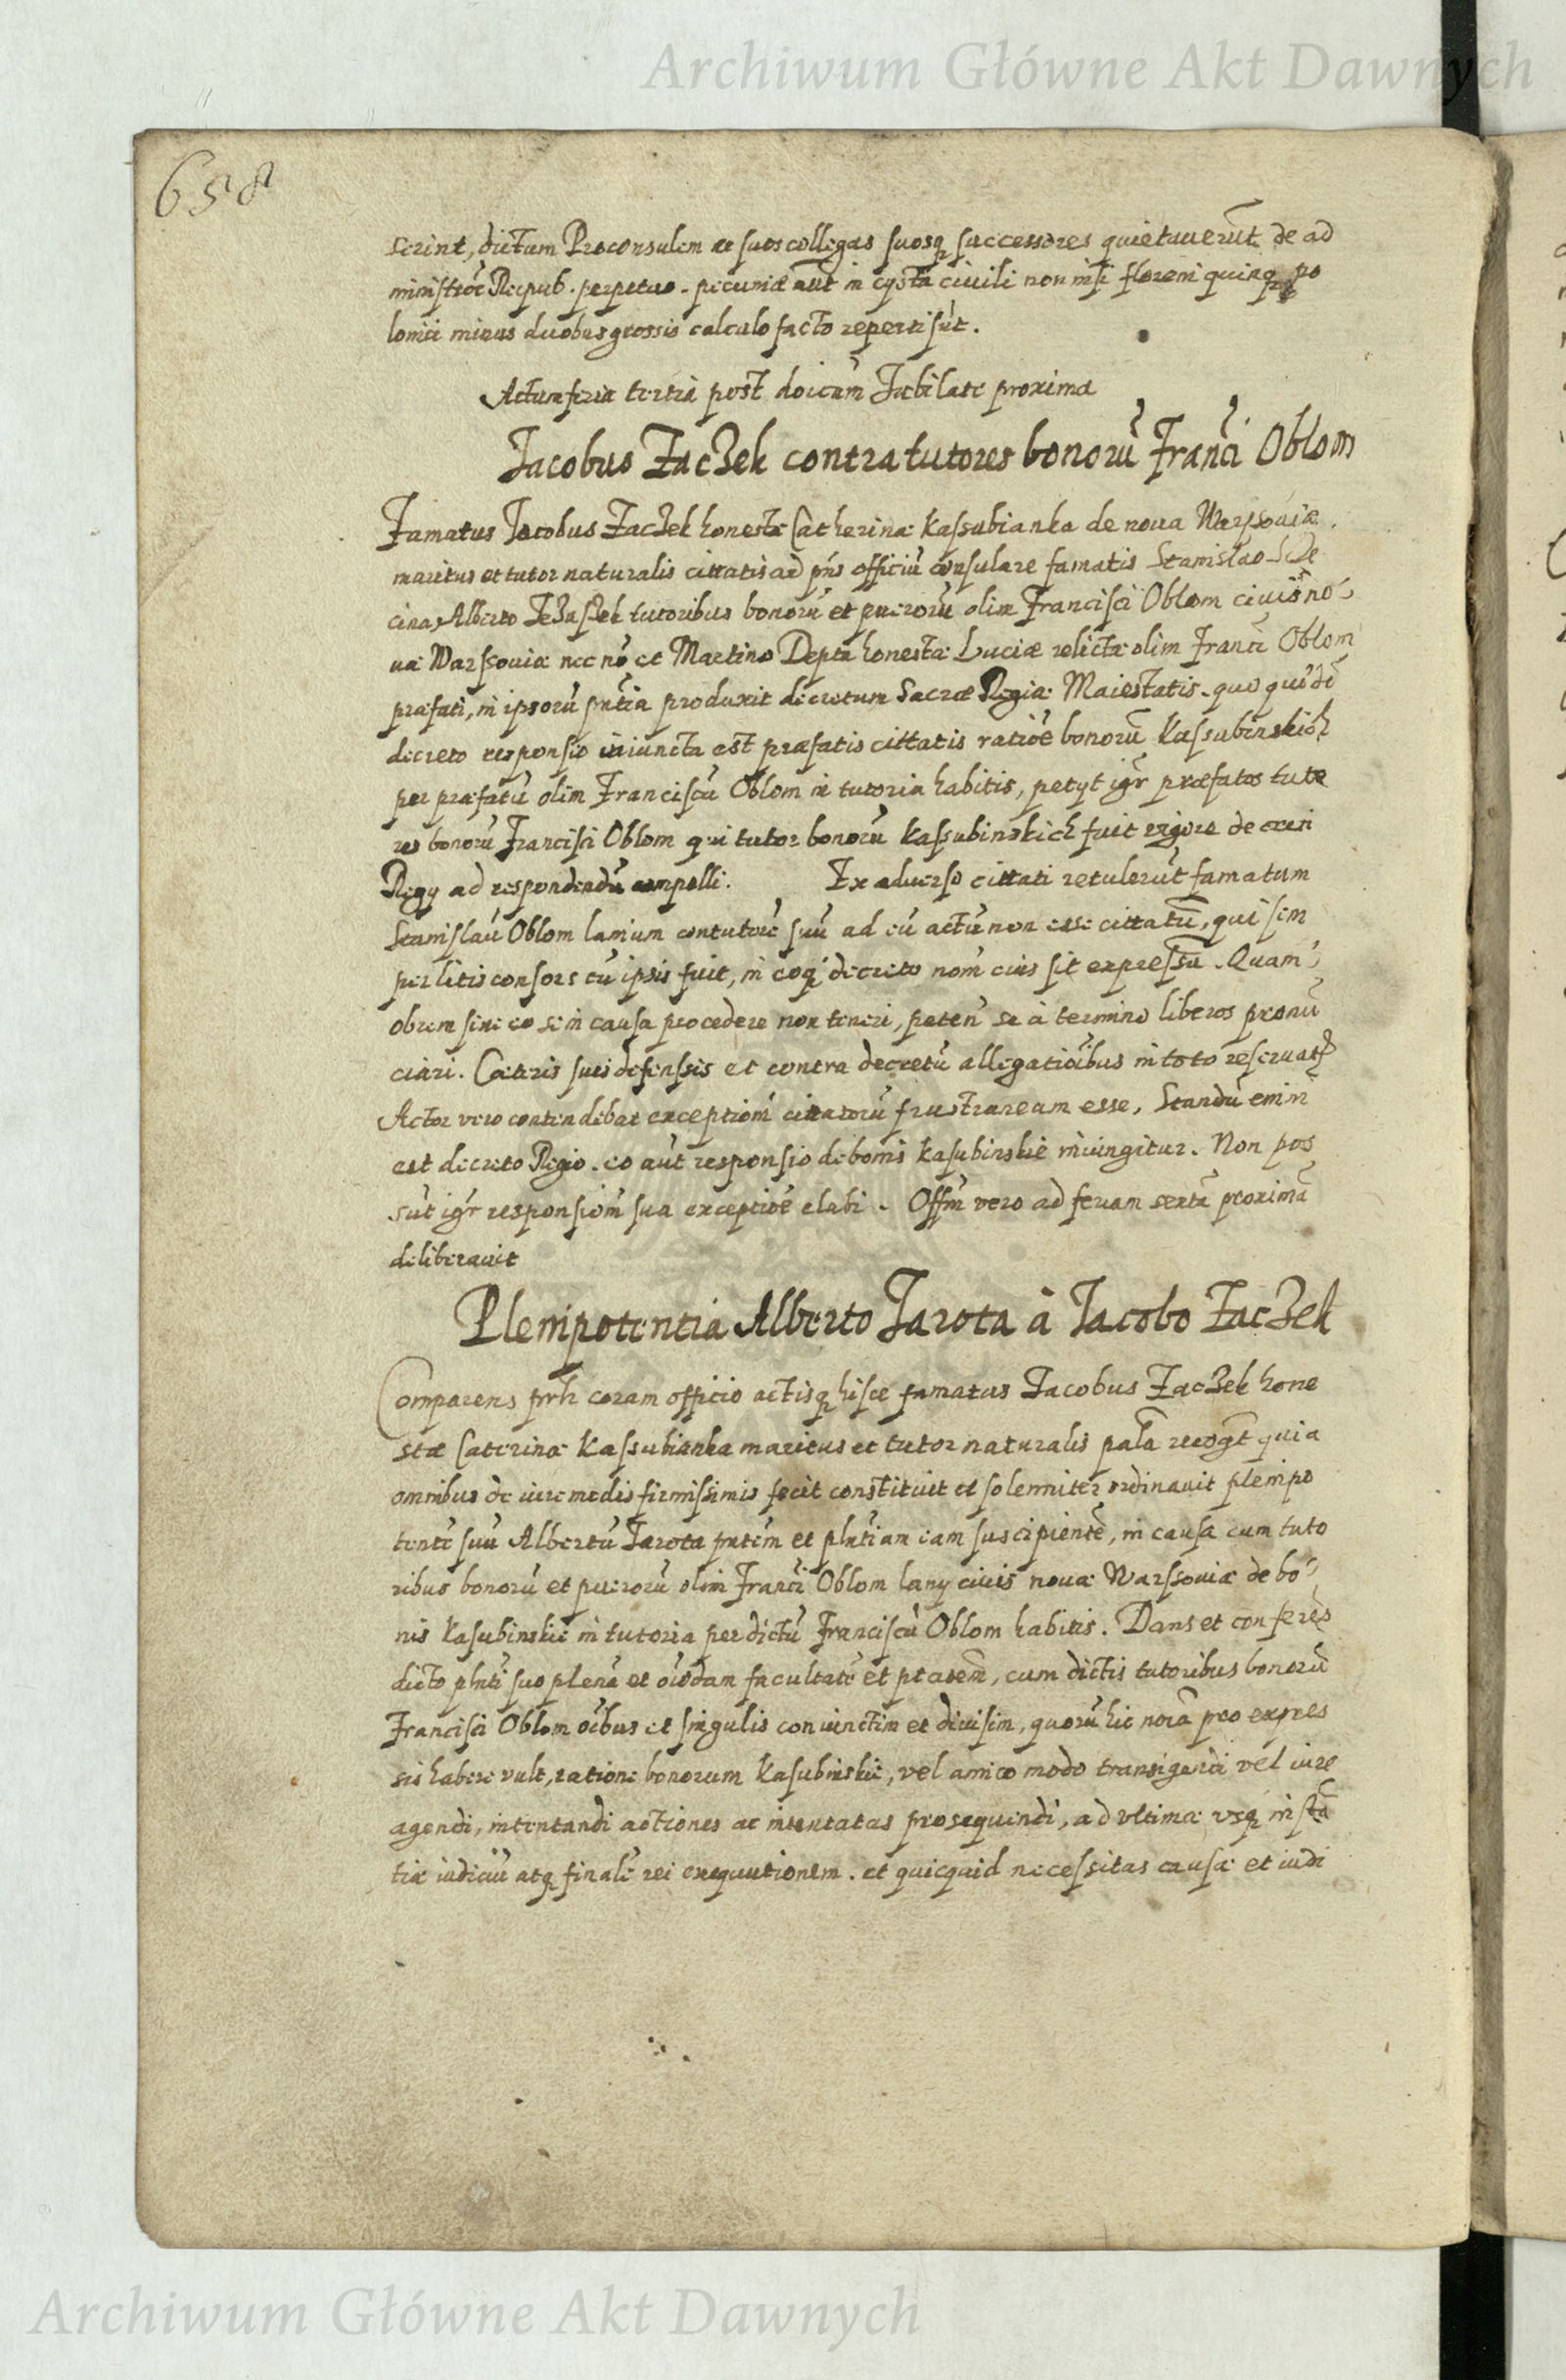 Archiwum Główne Akt Dawnych
658
serint, dictum Proconsulem ac suos collegas suosq successores quietaverūt de ad
ministrōe Reipub. perpetuo. pecuniæ aūt in cysta civili non nisi floreni quinq po
lonici minus duobus grossis calculo facto reperti sūt.
Actum feria tertia post doicam Jubilate proxima
Jacobus ZacZek contra tutores bonorū Franci Oblom
Famatus Jacobus ZacZek honestæ Catherinæ Kassubianka de nova Warssoviæ
maritus et tutor naturalis cittatis ad pns officiū consulare famatis Stanislao
Alberto tutoribus bonorū et puerorū olim Francisci Oblom civis no
væ Warssoviæ nec nō et Martino Depta honestæ Luciæ relictæ olim Franci Oblom
præfati, in ipsorū pntia produxit decretum Sacræ Regiæ Maiestatis. quo quidē
decreto responsio iniuncta est præfatis cittatis ratiōe bonorū Kassubinskich
per præfatū olim Franciscū Oblom in tutoria habitis, petyt igr præfatos tuto
res bonorū Francisci Oblom qui tutor bonorū Kassubinskich fuit rigore decreti
Regy ad respondendū compelli. Ex adverso cittati retulerūt famatum
Stanislaū Oblom lanium contutorē suū ad eū actū non esse cittatū, qui sem
per litis consors cū ipsis fuit, in eoq decreto nom eius sit expressū. Quam
obrem sine eo se in causa procedere non teneri, peten se à termino liberos pronū
ciari. Cæteris suis defenssis et contra decretū allegatiōibus in toto reservatis
Actor vero contendebat exceptiom cittatorū frustraneam esse, Standū enim
est decreto Regio. eo aūt responsio de bonis Kasubinskie iniungitur. Non pos
sūt igr responsiom sua exceptiōe elabi. Offm vero ad feriam sextā proximā
deliberavit
Plenipotentia Alberto Jarota à Jacobo ZacZek
Comparens prh coram officio actisq hisce famatus Jacobus ZacZek hone
stæ Caterinæ Kassubianka maritus et tutor naturalis palā recogt quia
omnibus de iure modis firmissimis fecit constituit et solenniter ordinavit plenipo
tentē suū Albertū Jarota pntem et plntiam eam suscipientē, in causa cum tuto
ribus bonorū et puerorū olim Franci Oblom lany civis novæ Warssoviæ de bo
nis Kasubinskie in tutoria per dictū Franciscū Oblom habitis. Dans et conferēs
dicto plnti suo plenā et oīodam facultatē et ptatem, cum dictis tutoribus bonorū
Francisci Oblom oībus et singulis coniunctim et divisim, quorū hic noīa pro expres
sis habere vult, ratione bonorum Kasubinskie, vel amico modo transigendi vel iure
agendi, intentandi actiones ac intentatas prosequendi, ad ultimæ usq instā
tiæ iudiciū atq finalē rei exequutionem. et quicquid necessitas causæ et iudi
Archiwum Główne Akt Dawnych